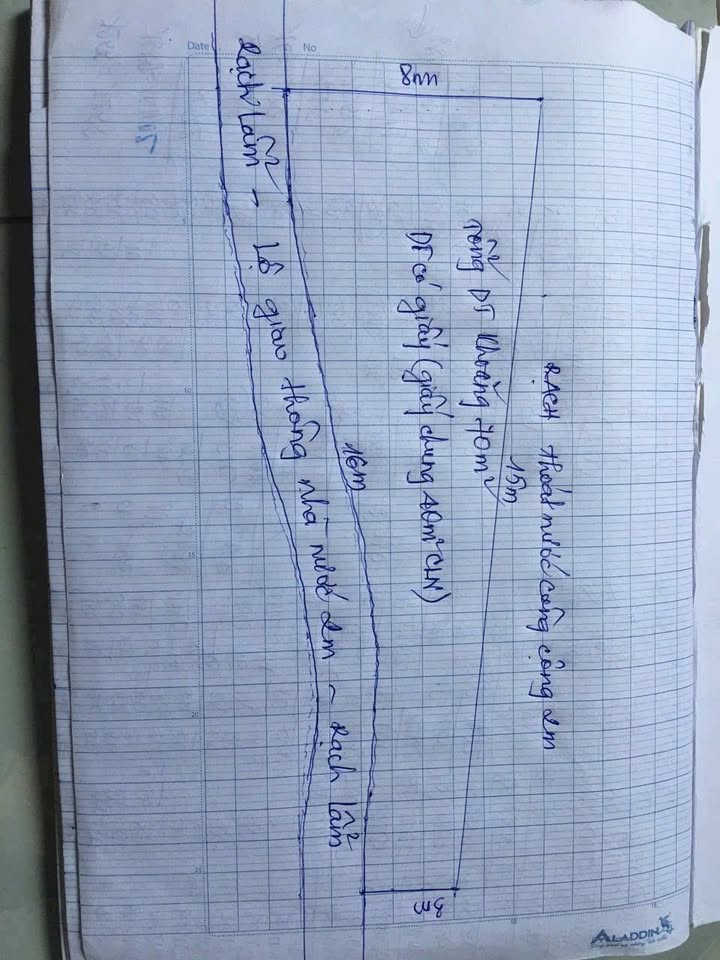 Date
No
8m
RẠCH thoát nước công cộng 2m
15m
Tổng DT khoảng 70m²
DT có giấy (giấy chung 40m² CLN)
16m
Rạch Lẫm - Lộ giao thông nhà nước 2m - Rạch Lẫm
3m
5
10
15
20
25
ALADDIN